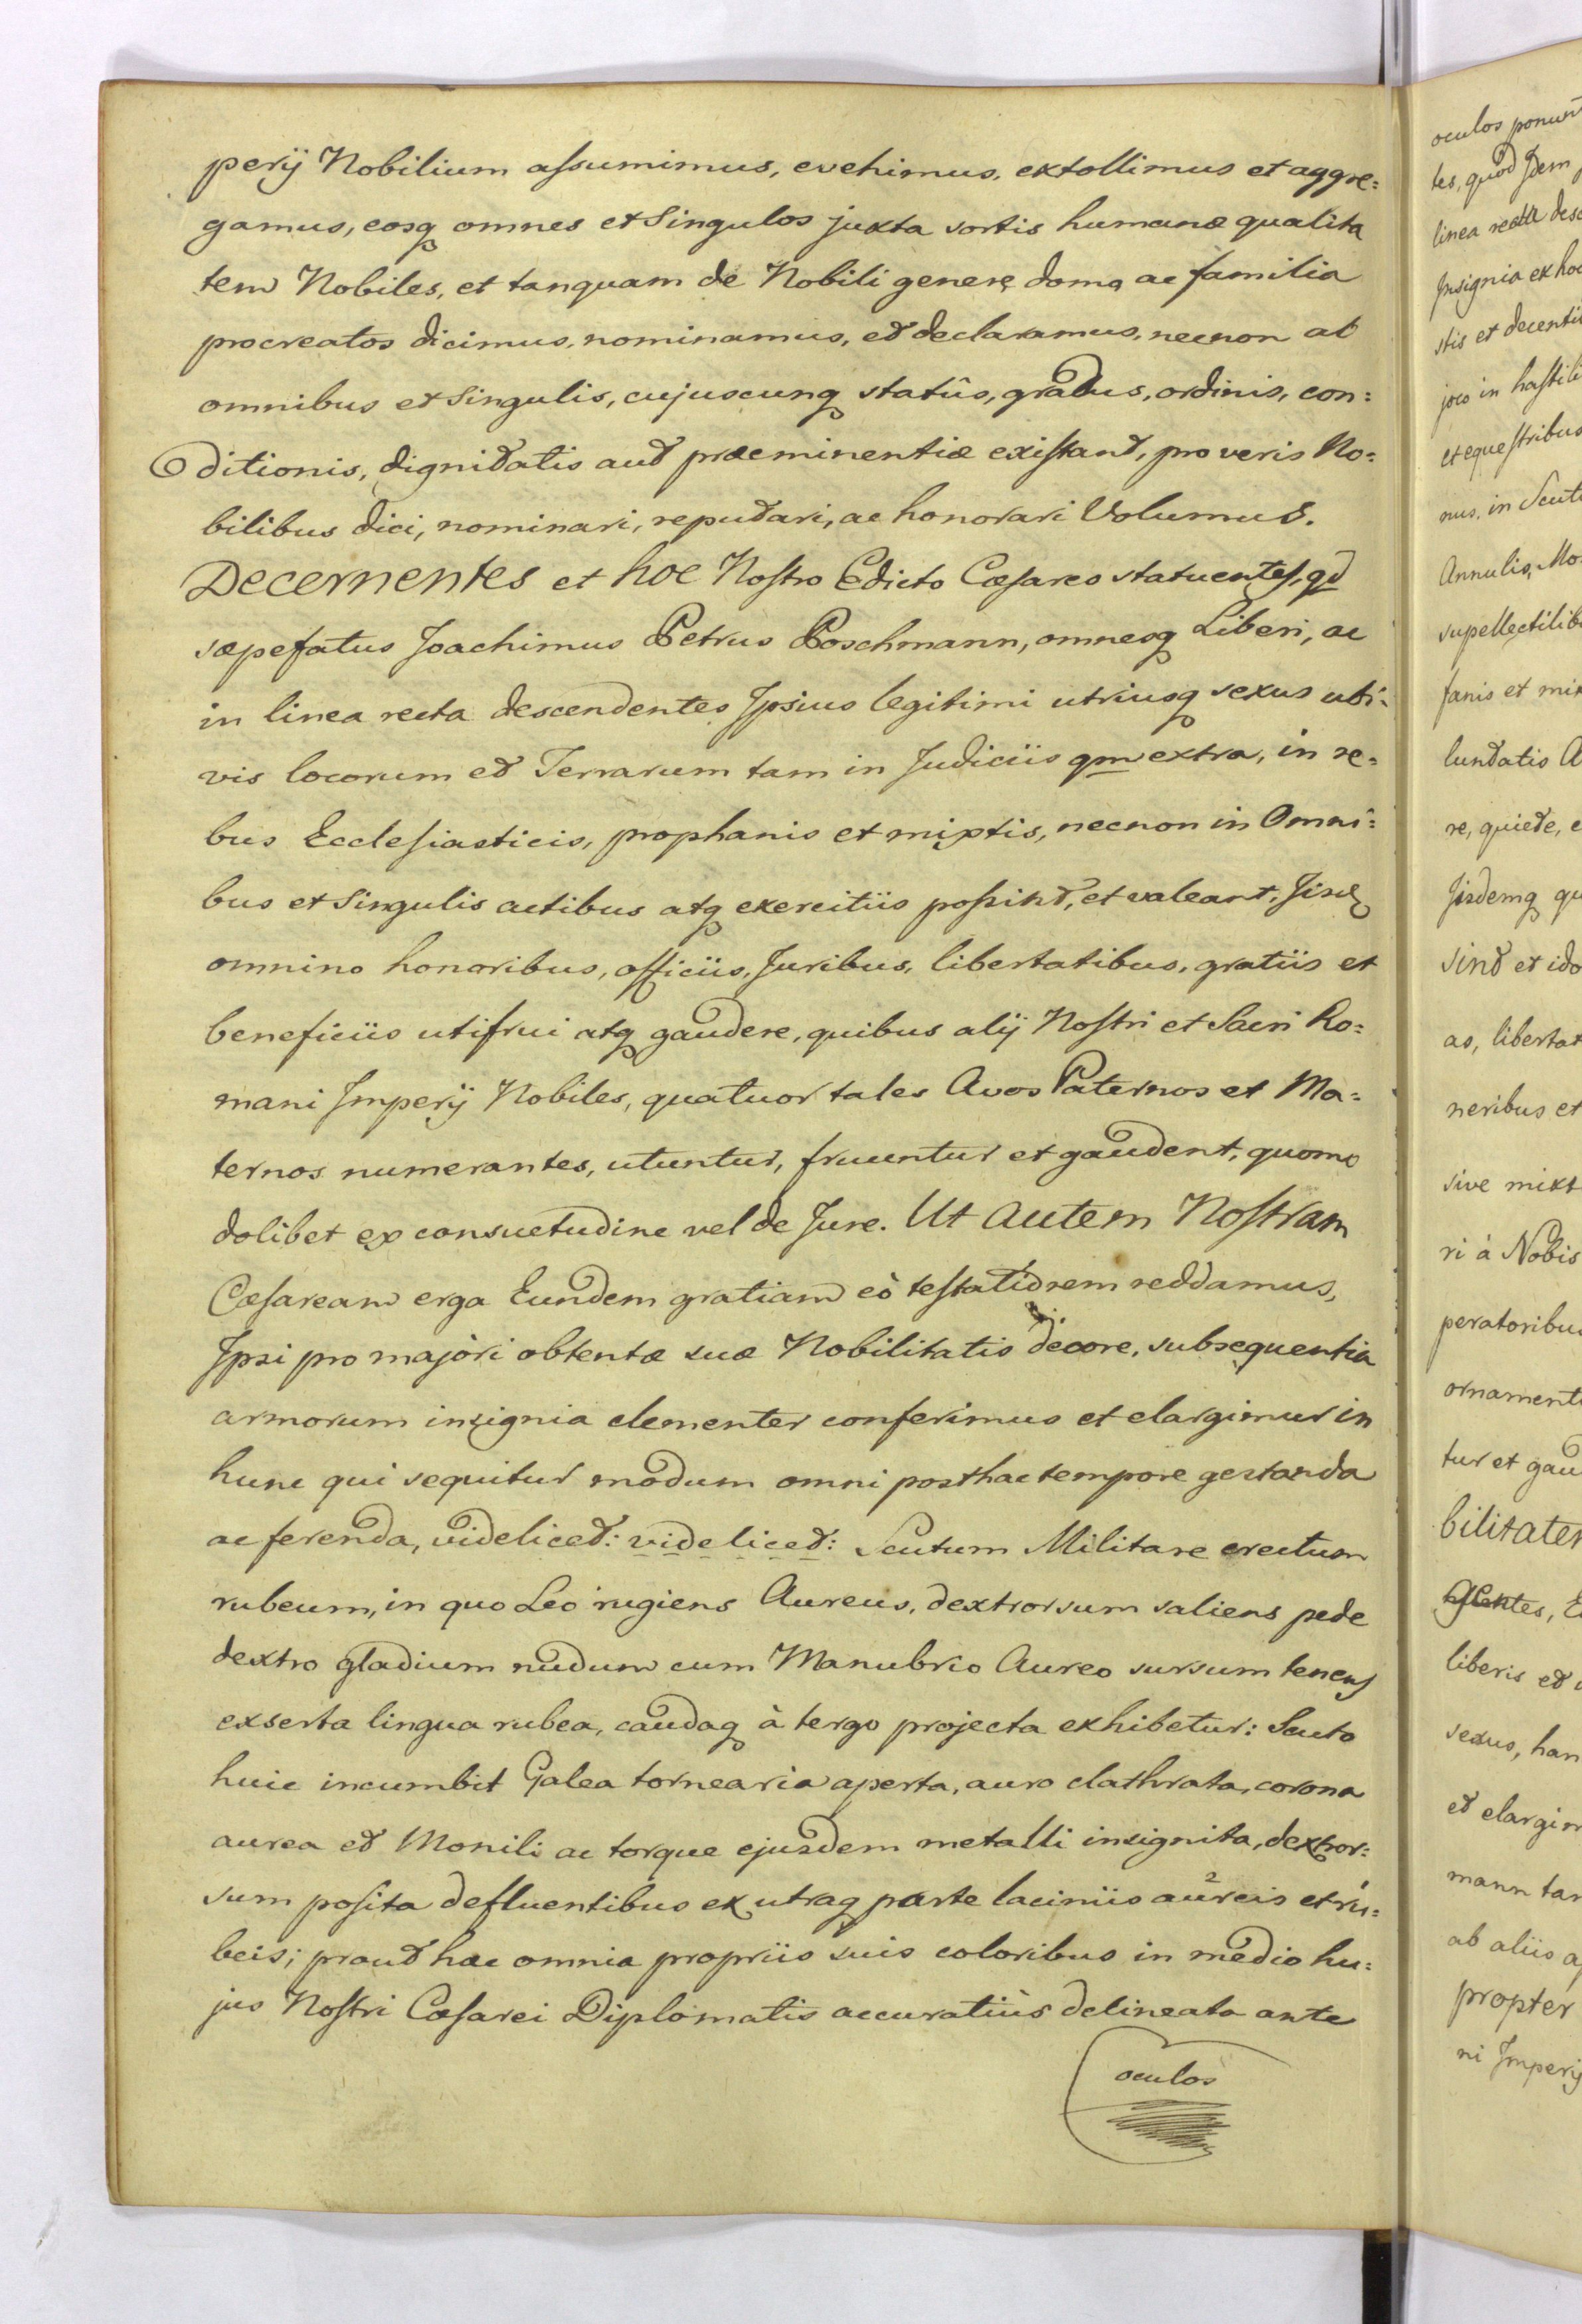 perij Nobilium assumimus, evehimus, extollimus et aggre:
gamus, eosq omnes et Singulos juxta sortis humanæ qualita
tem Nobiles, et tanquam de Nobili genere domo ac familia
procreatos dicimus, nominamus, et declaramus, necnon ab
omnibus et Singulis, cujuscunq statûs, gradus, ordinis, con:
ditionis, dignitatis aut præeminentiæ existant, pro veris No:
bilibus dici, nominari, reputari, ac honorari Volumus.
Decernentes et hoc Nostro Edicto Cæsareo statuentes, qd
sæpefatus Joachimus Petrus Poschmann, omnesq Liberi, ac
in linea recta descendentes Ipsius legitimi utriusq sexus ubi:
vis locorum et Terrarum tam in Judiciis qm extra, in re:
bus Ecclesiasticis, prophanis et mixtis, necnon in Omni:
bus et Singulis actibus atq exercitiis possint, et valeant, Iisd
omnino honoribus, officiis, Juribus, libertatibus, gratiis et
beneficiis utifrui atq gaudere, quibus alij Nostri et Sacri Ro:
mani Imperij Nobiles, quatuor tales Avos Paternos et Ma:
ternos numerantes, utuntur, fruuntur et gaudent, quomo
dolibet ex consuetudine vel de Jure. Ut Autem Nostram
Cæsaream erga Eundem gratiam eò testatiorem reddamus,
Ipsi pro majori obtentæ suæ Nobilitatis decore, subsequentia
armorum insignia clementer conferimus et elargimur in
hunc qui sequitur modum omni posthac tempore gestanda
ac ferenda, videlicet: videlicet: Scutum Militare erectum
rubeum, in quo Leo rugiens Aureus, dextrorsum saliens pede
dextro gladium nudum cum Manubrio Aureo sursum tenens
exserta lingua rubea, caudaq à tergo projecta exhibetur: Scuto
huic incumbit Galea tornearia aperta, auro clathrata, corona
aurea et Monili ac torque ejusdem metalli insignita, dextror:
sum posita defluentibus ex utraq parte laciniis aureis et ru:
beis; prout hæc omnia propriis suis coloribus in medio hu:
jus Nostri Cæsarei Diplomatis accuratiùs delineata ante
oculos
oculos
tes, quod
linea recta
Insignia ex hoc
stis et
joco in
et equestribus
nus, in
Annulis,
fanis et
re, quiete,
Iisdemq
sint et
as,
neribus et
sive mixt
ri à Nobis
tur et
liberis et
sexus,
et
mann
ab aliis
propter
ni Imperij